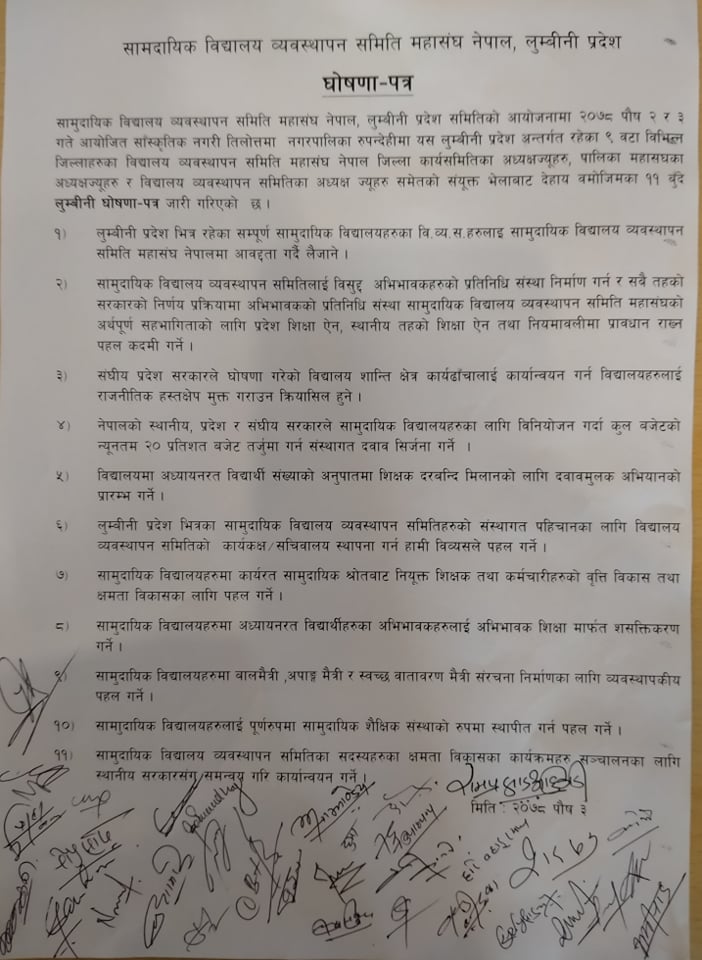 सामदायिक विद्यालय व्यवस्थापन समिति महासंघ नेपाल, लुम्बीनी प्रदेश
घोषणा-पत्र
सामुदायिक विद्यालय व्यवस्थापन समिति महासंघ नेपाल, लुम्बीनी प्रदेश समितिको आयोजनामा २०७८ पौष २ र ३
गते आयोजित साँस्कृतिक नगरी तिलोत्तमा नगरपालिका रुपन्देहीमा यस लुम्बीनी प्रदेश अन्तर्गत रहेका ९ वटा विभिन्न
जिल्लाहरुका विद्यालय व्यवस्थापन समिति महासंघ नेपाल जिल्ला कार्यसमितिका अध्यक्षज्यूहरु, पालिका महासघका
अध्यक्षज्यूहरु र विद्यालय व्यवस्थापन समितिका अध्यक्ष ज्यूहरु समेतको संयूक्त भेलाबाट देहाय वमोजिमका ११ बुँदे
लुम्बीनी घोषणा-पत्र जारी गरिएको छ ।
१) लुम्बीनी प्रदेश भित्र रहेका सम्पूर्ण सामुदायिक विद्यालयहरुका वि.व्य.स.हरुलाइ सामुदायिक विद्यालय व्यवस्थापन
समिति महासंघ नेपालमा आवद्दता गर्दै लैजाने ।
२) सामुदायिक विद्यालय व्यवस्थापन समितिलाई विसुद्द अभिभावकहरुको प्रतिनिधि संस्था निर्माण गर्न र सवै तहको
सरकारको निर्णय प्रक्रियामा अभिभावकको प्रतिनिधि संस्था सामुदायिक विद्यालय व्यवस्थापन समिति महासंघको
अर्थपूर्ण सहभागिताको लागि प्रदेश शिक्षा ऐन, स्थानीय तहको शिक्षा ऐन तथा नियमावलीमा प्रावधान राख्न
पहल कदमी गर्ने ।
३) संघीय प्रदेश सरकारले घोषणा गरेको विद्यालय शान्ति क्षेत्र कार्यढाँचालाई कार्यान्वयन गर्न विद्यालयहरुलाई
राजनीतिक हस्तक्षेप मुक्त गराउन क्रियासिल हुने ।
४) नेपालको स्थानीय, प्रदेश र संघीय सरकारले सामुदायिक विद्यालयहरुका लागि विनियोजन गर्दा कुल बजेटको
न्यूनतम २० प्रतिशत बजेट तर्जुमा गर्न संस्थागत दवाव सिर्जना गर्ने ।
५) विद्यालयमा अध्यायनरत विद्यार्थी संख्याको अनुपातमा शिक्षक दरबन्दि मिलानको लागि दवावमुलक अभियानको
प्रारम्भ गर्ने ।
६) लुम्बीनी प्रदेश भित्रका सामुदायिक विद्यालय व्यवस्थापन समितिहरुको संस्थागत पहिचानका लागि विद्यालय
व्यवस्थापन समितिको कार्यकक्ष/सचिवालय स्थापना गर्न हामी विव्यसले पहल गर्ने ।
७) सामुदायिक विद्यालयहरुमा कार्यरत सामुदायिक श्रोतबाट नियूक्त शिक्षक तथा कर्मचारीहरुको वृत्ति विकास तथा
क्षमता विकासका लागि पहल गर्ने ।
८) सामुदायिक विद्यालयहरुमा अध्यायनरत विद्यार्थीहरुका अभिभावकहरुलाई अभिभावक शिक्षा मार्फत शसक्तिकरण
गर्ने ।
९) सामुदायिक विद्यालयहरुमा वालमैत्री ,अपाङ्ग मैत्री र स्वच्छ वातावरण मैत्री संरचना निर्माणका लागि व्यवस्थापकीय
पहल गर्ने ।
१०) सामादुायिक विद्यालयहरुलाई पूर्णरुपमा सामुदायिक शैक्षिक संस्थाको रुपमा स्थापीत गर्न पहल गर्ने ।
११) सामुदायिक विद्यालय व्यवस्थापन समितिका सदस्यहरुका क्षमता विकासका कार्यक्रमहरु सञ्चालनका लागि
स्थानीय सरकारसंग समन्वय गरि कार्यान्वयन गर्ने ।
मिति : २०७८ पौष ३